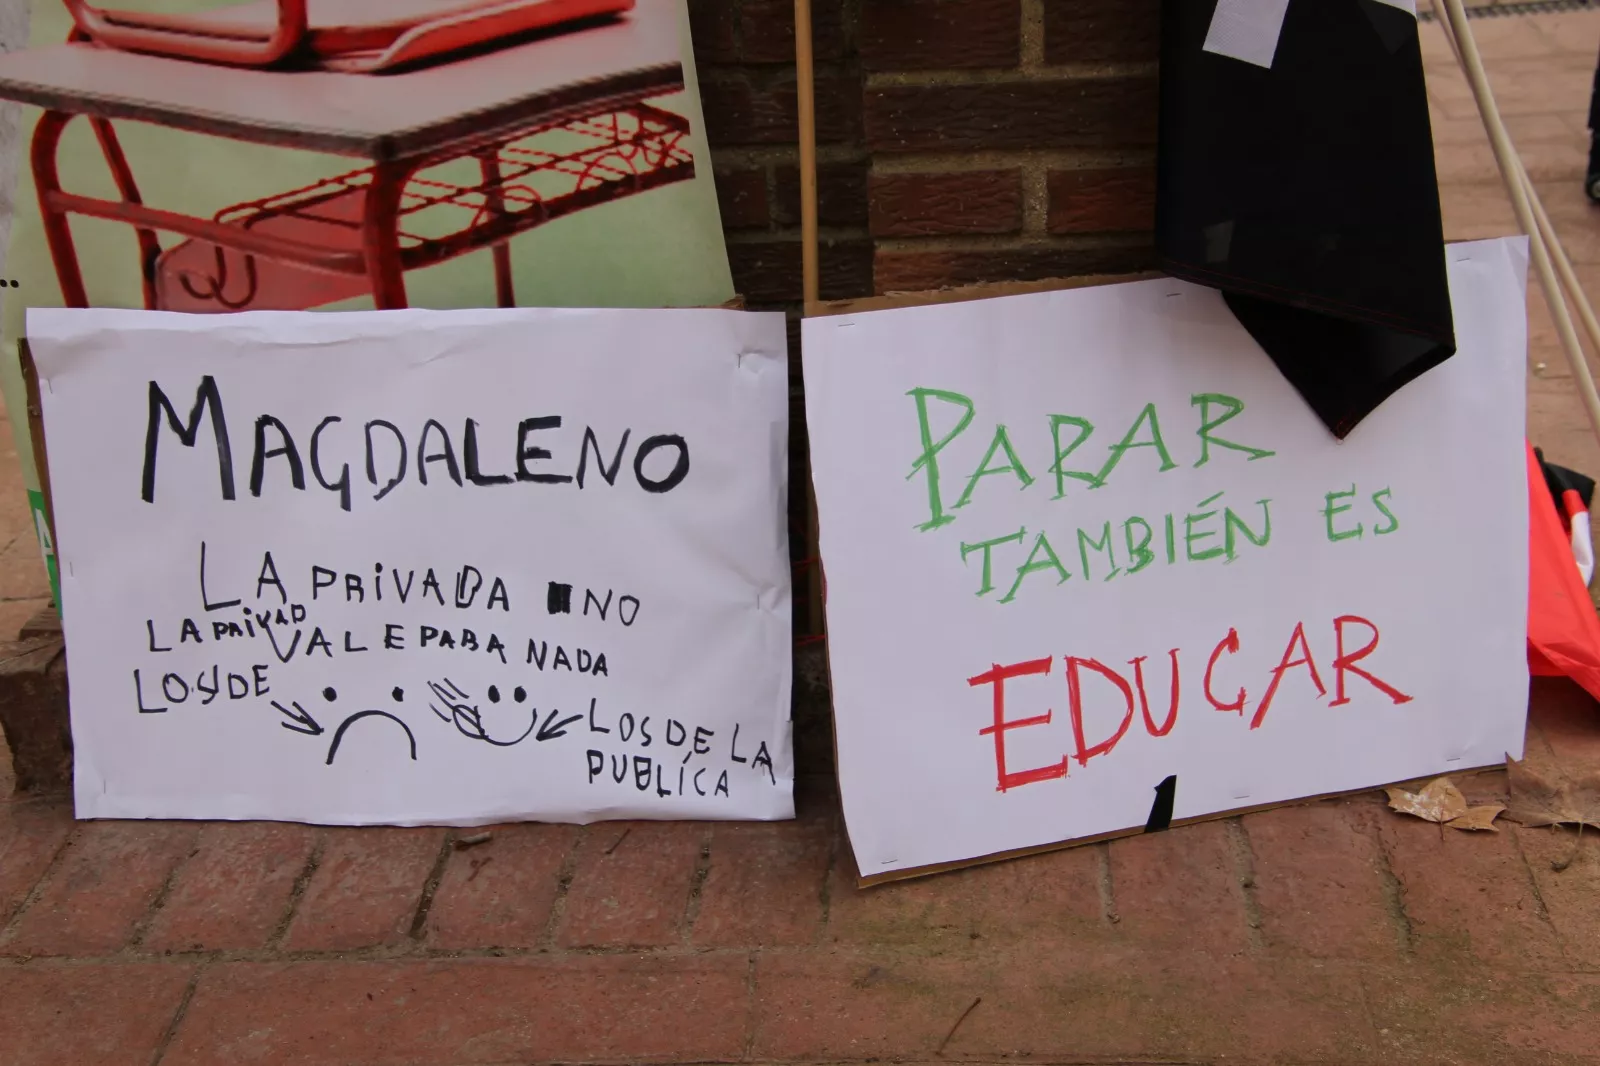 MAGDALENO
LA PRIVADA NO
LA PRIVAD
VALE PARA NADA
LOS DE
LOS DE LA
PUBLÍCA
PARAR
TAMBIÉN ES
EDUCAR